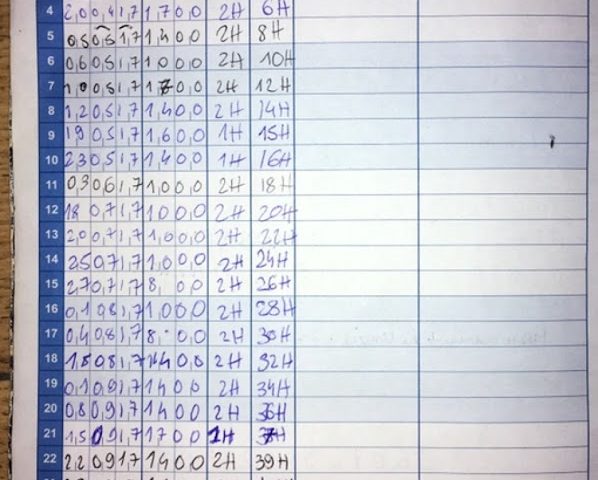 4 20 04 17 17 00 2H 6H
5 08 05 17 14 00 2H 8H
6 06 05 17 10 00 2H 10H
7 10 05 17 17 00 2H 12H
8 12 05 17 14 00 2H 14H
9 19 05 17 16 00 1H 15H
10 23 05 17 14 00 1H 16H
11 03 06 17 10 00 2H 18H
12 18 07 17 10 00 2H 20H
13 20 07 17 10 00 2H 22H
14 25 07 17 10 00 2H 24H
15 27 07 17 8 00 2H 26H
16 01 08 17 10 00 2H 28H
17 04 08 17 8 00 2H 30H
18 18 08 17 14 00 2H 32H
19 01 09 17 14 00 2H 34H
20 08 09 17 14 00 2H 36H
21 15 09 17 17 00 1H 37H
22 22 09 17 14 00 2H 39H